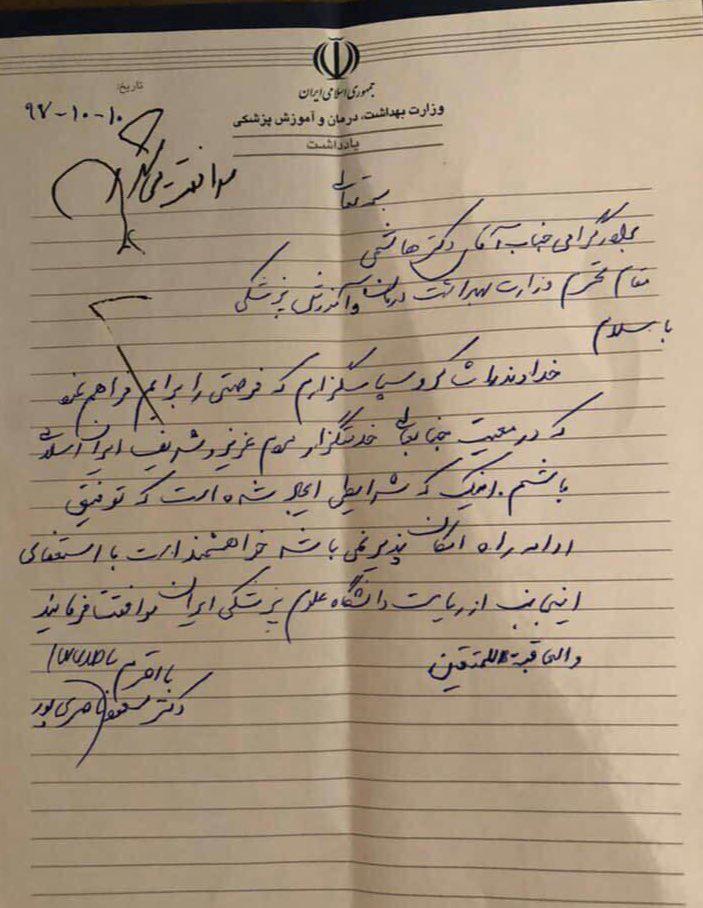 جمهوری اسلامی ایران
وزارت بهداشت، درمان و آموزش پزشکی
یادداشت
تاریخ:
۹۷-۱۰-۱۰
موافقت می
بسمه تعالی
برادر گرامی جناب آقای دکتر هاشمی
مقام محترم وزارت بهداشت درمان و آموزش پزشکی
با سلام
خداوند را شاکر و سپاسگزارم که فرصتی را برایم فراهم نمود
که در معیت جنابعالی خدمتگزار مردم عزیز و شریف ایران اسلامی
باشم. اینک که شرایطی ایجاد شده است که توفیق
ادامه راه امکان پذیر نمی باشد خواهشمند است با استعفای
اینجانب از ریاست دانشگاه علوم پزشکی ایران موافقت فرمایید
والعاقبة للمتقین
با احترام
دکتر مسعود ناصری پور